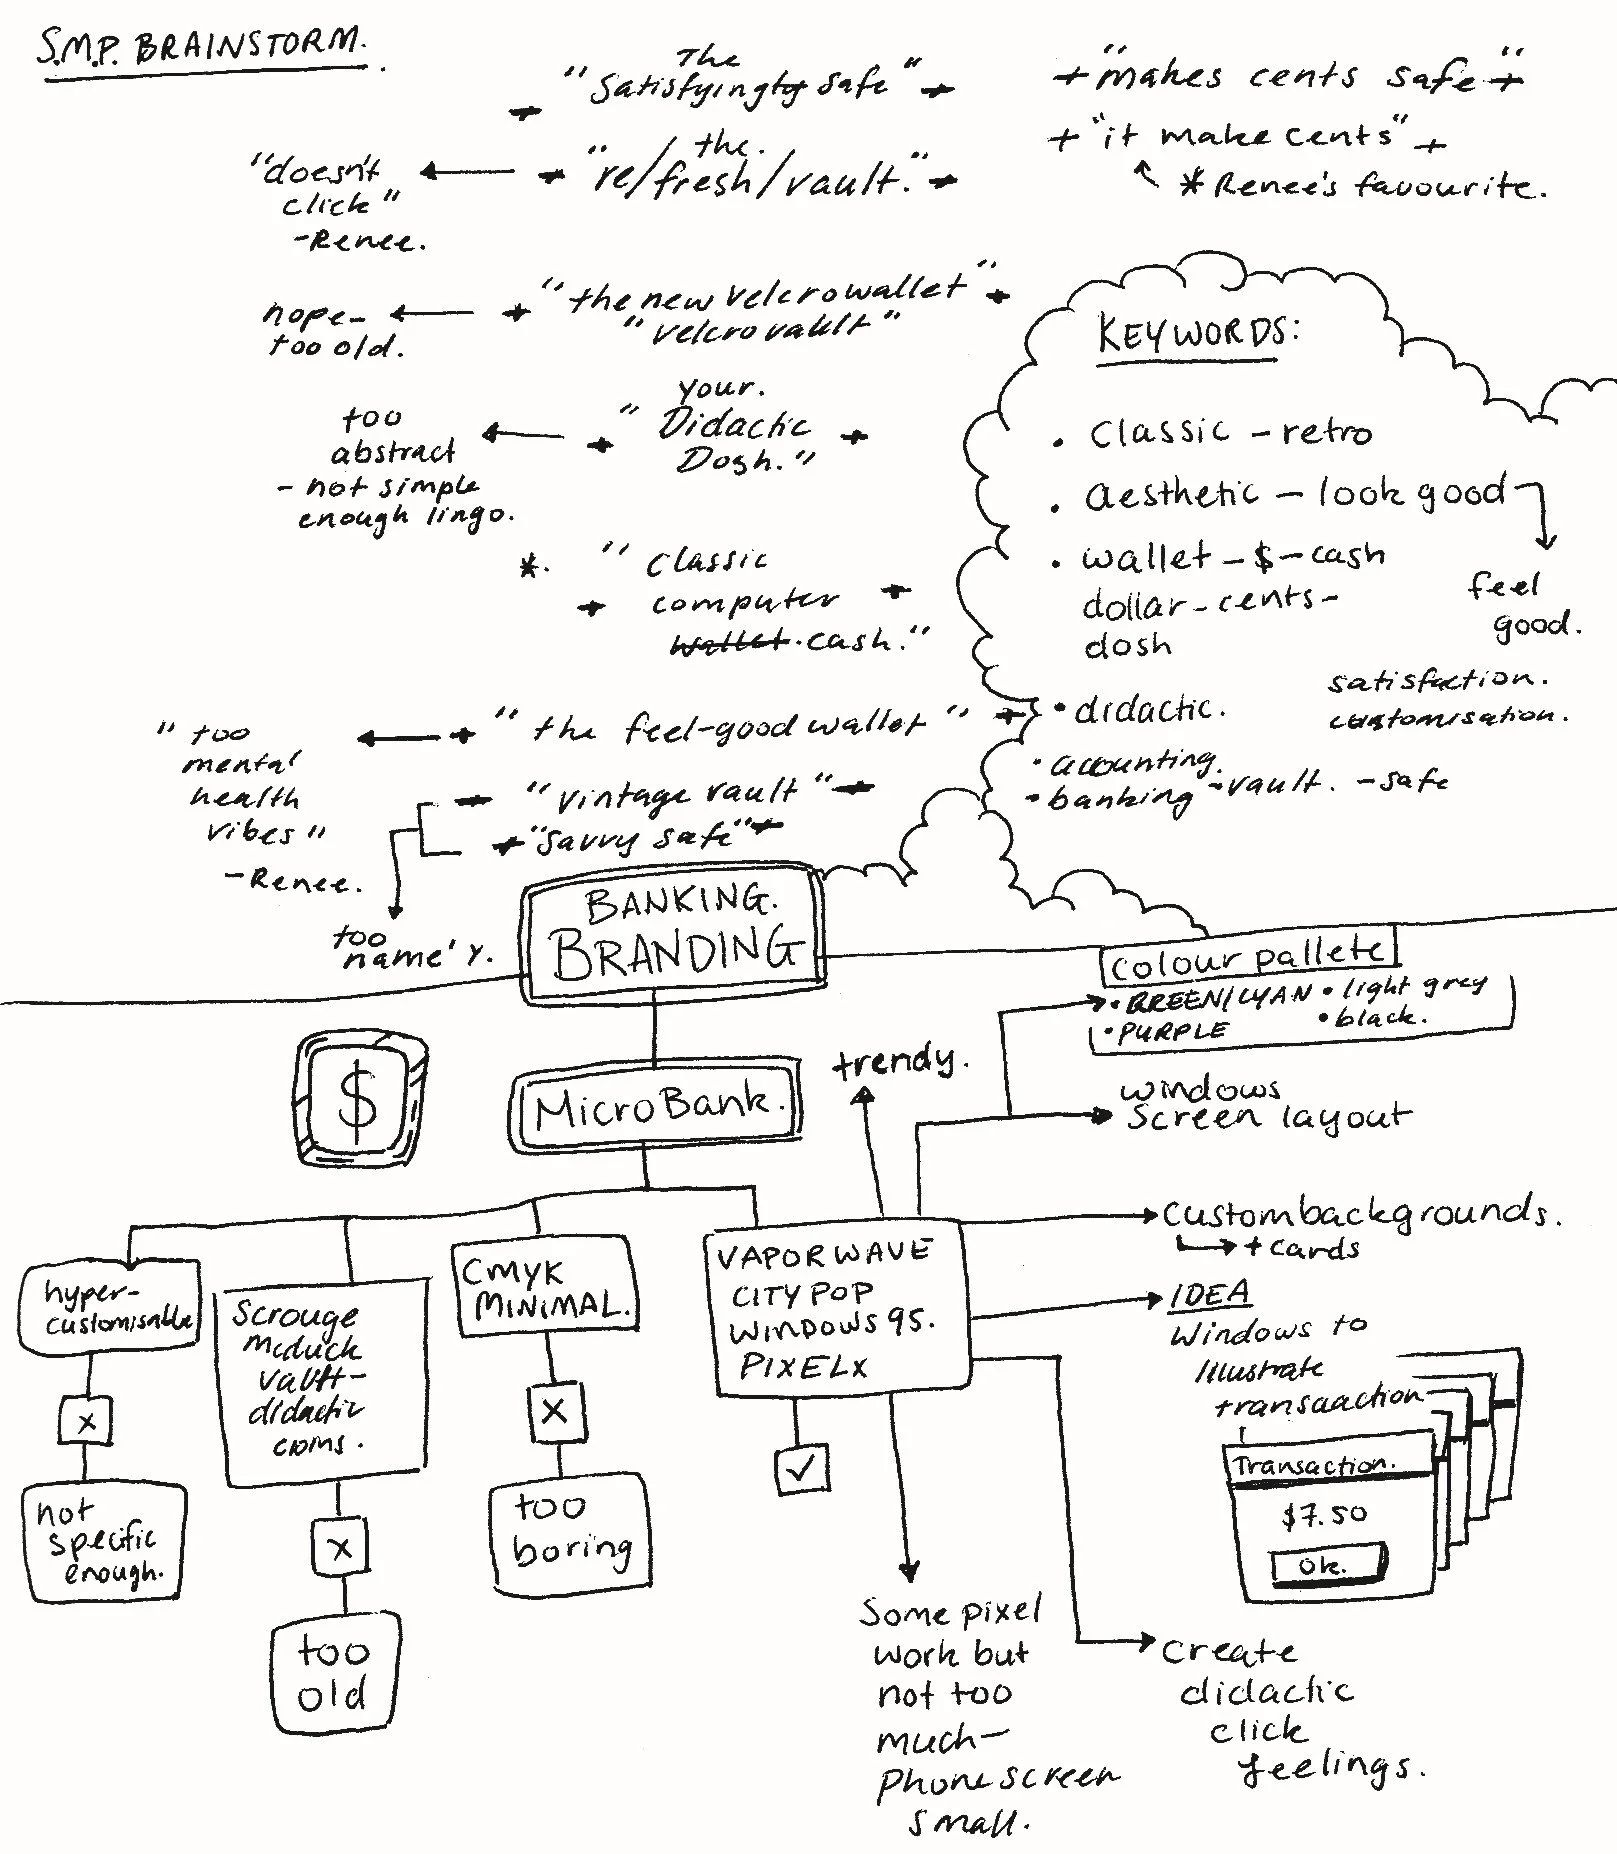 S.M.P. BRAINSTORM.
The
"Satisfyingty safe"
"doesn't
click"
-Renee.
the.
"re/fresh/vault."
+ "makes cents safe" +
+ "it make cents" +
* Renee's favourite.
nope-
too old.
"the new velcro wallet"
"velcro vault"
too
abstract
- not simple
enough lingo.
your.
"Didactic
Dosh."
*. "classic
computer
wallet. cash."
"too
mental
health
vibes"
-Renee.
"the feel-good wallet"
"vintage vault"
"savvy safe"
too
name'y.
KEYWORDS:
• classic - retro
• aesthetic - look good
feel
good.
• wallet - $ - cash
dollar - cents -
dosh
satisfaction.
customisation.
• didactic.
• accounting.
• banking - vault. - safe
BANKING.
BRANDING
colour pallete
• GREEN/CYAN • light grey
• PURPLE • black.
$
MicroBank.
trendy.
windows
screen layout
hyper-
customisable
x
not
specific
enough.
Scrouge
mcduck
vault-
didactic
coins.
x
too
old
CMYK
MINIMAL.
X
too
boring
VAPORWAVE
CITY POP
WINDOWS 95.
PIXELX
Custom backgrounds.
+ cards
IDEA
Windows to
illustrate
transaaction
Transaction.
$7.50
Ok.
Some pixel
work but
not too
much-
Phone screen
small.
Create
didactic
click
feelings.